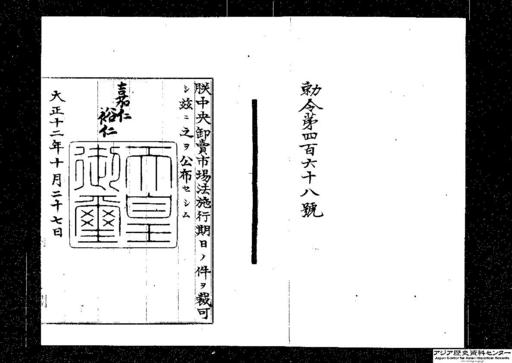 勅令第四百六十八號
朕中央卸賣市場法施行期日ノ件ヲ裁可
シ茲ニ之ヲ公布セシム
嘉仁
裕仁
天皇御璽
大正十二年十月二十七日
アジア歴史資料センター
Japan Center for Asian Historical Records